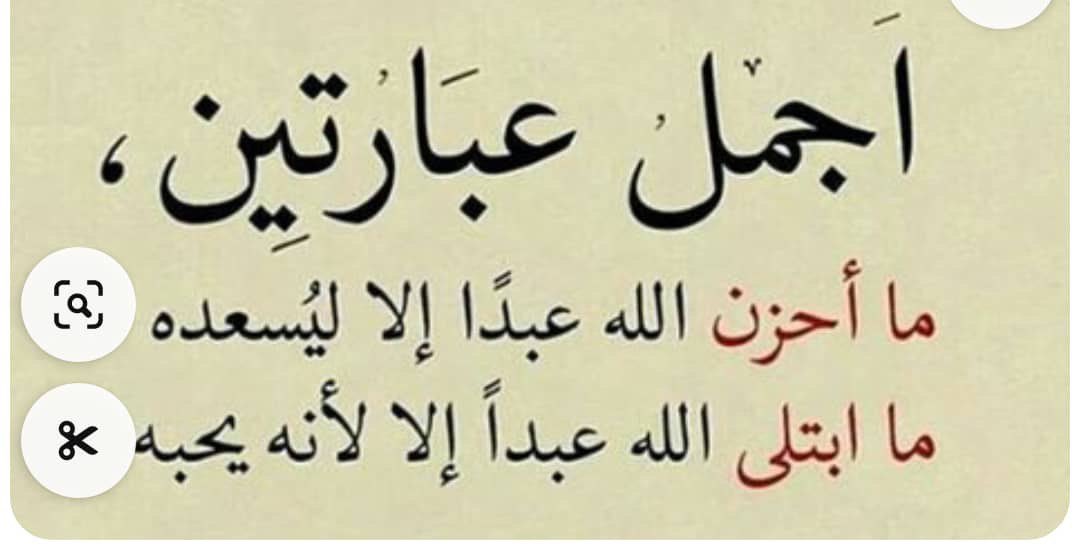 اَجمل عبَارتِين ،
ما أحزن الله عبدًا إلا ليُسعده
ما ابتلى الله عبداً إلا لأنه يحبه